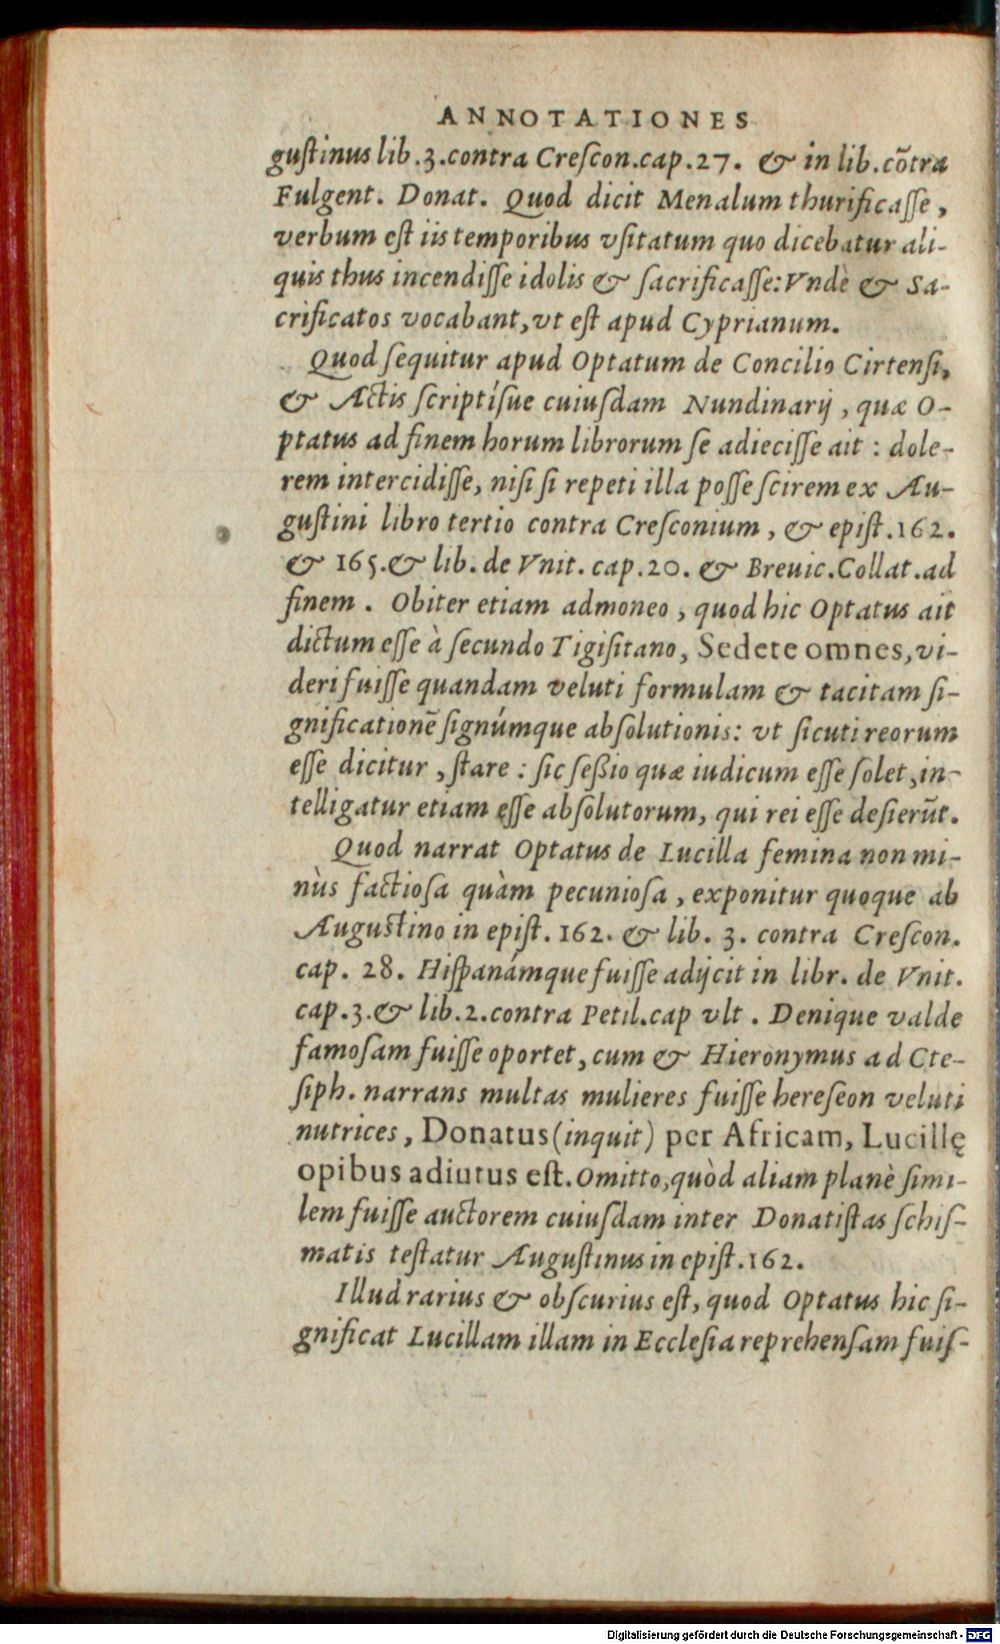 ANNOTATIONES
guſtinus lib.3.contra Creſcon.cap.27. & in lib.cõtra
Fulgent. Donat. Quod dicit Menalum thurificaſſe,
verbum eſt iis temporibus vſitatum quo dicebatur ali-
quis thus incendiſſe idolis & ſacrificaſſe: Vndè & Sa-
crificatos vocabant, vt eſt apud Cyprianum.
Quod ſequitur apud Optatum de Concilio Cirtenſi,
& Actis ſcriptíſue cuiuſdam Nundinarij, quæ O-
ptatus ad finem horum librorum ſe adieciſſe ait : dole-
rem intercidiſſe, niſi ſi repeti illa poſſe ſcirem ex Au-
guſtini libro tertio contra Creſconium, & epiſt.162.
& 165.& lib. de Vnit. cap.20. & Breuic.Collat.ad
finem. Obiter etiam admoneo, quod hic Optatus ait
dictum eſſe à ſecundo Tigiſitano, Sedete omnes, vi-
deri fuiſſe quandam veluti formulam & tacitam ſi-
gnificationẽ ſignúmque abſolutionis: vt ſicuti reorum
eſſe dicitur, ſtare : ſic ſeßio quæ iudicum eſſe ſolet, in-
telligatur etiam eſſe abſolutorum, qui rei eſſe deſierũt.
Quod narrat Optatus de Lucilla femina non mi-
nùs factioſa quàm pecunioſa, exponitur quoque ab
Auguſtino in epiſt. 162. & lib. 3. contra Creſcon.
cap. 28. Hiſpanámque fuiſſe adijcit in libr. de Vnit.
cap.3.& lib.2.contra Petil.cap vlt. Denique valde
famoſam fuiſſe oportet, cum & Hieronymus ad Cte-
ſiph. narrans multas mulieres fuiſſe hereſeon veluti
nutrices, Donatus (inquit) per Africam, Lucillę
opibus adiutus eſt. Omitto, quòd aliam planè ſimi-
lem fuiſſe auctorem cuiuſdam inter Donatiſtas ſchiſ-
matis teſtatur Auguſtinus in epiſt.162.
Illud rarius & obſcurius eſt, quod Optatus hic ſi-
gnificat Lucillam illam in Eccleſia reprehenſam fuiſ-
Digitalisierung gefördert durch die Deutsche Forschungsgemeinschaft - DFG